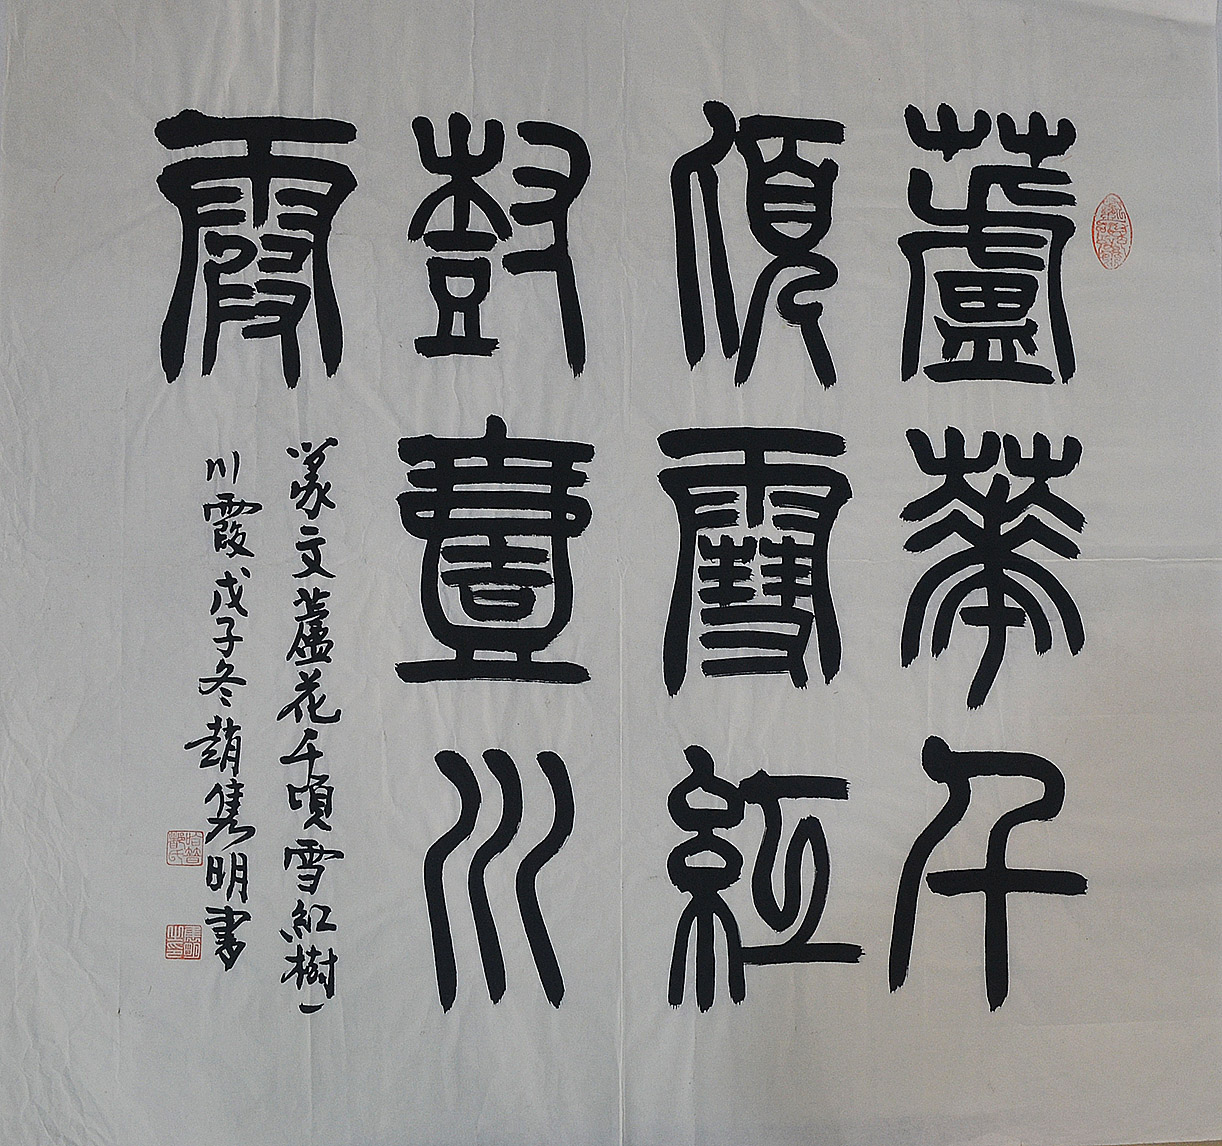 蘆華千
頃雪紅
尌壹川
霞
篆文蘆花千頃雪紅樹一
川霞戊子冬趙雋明書